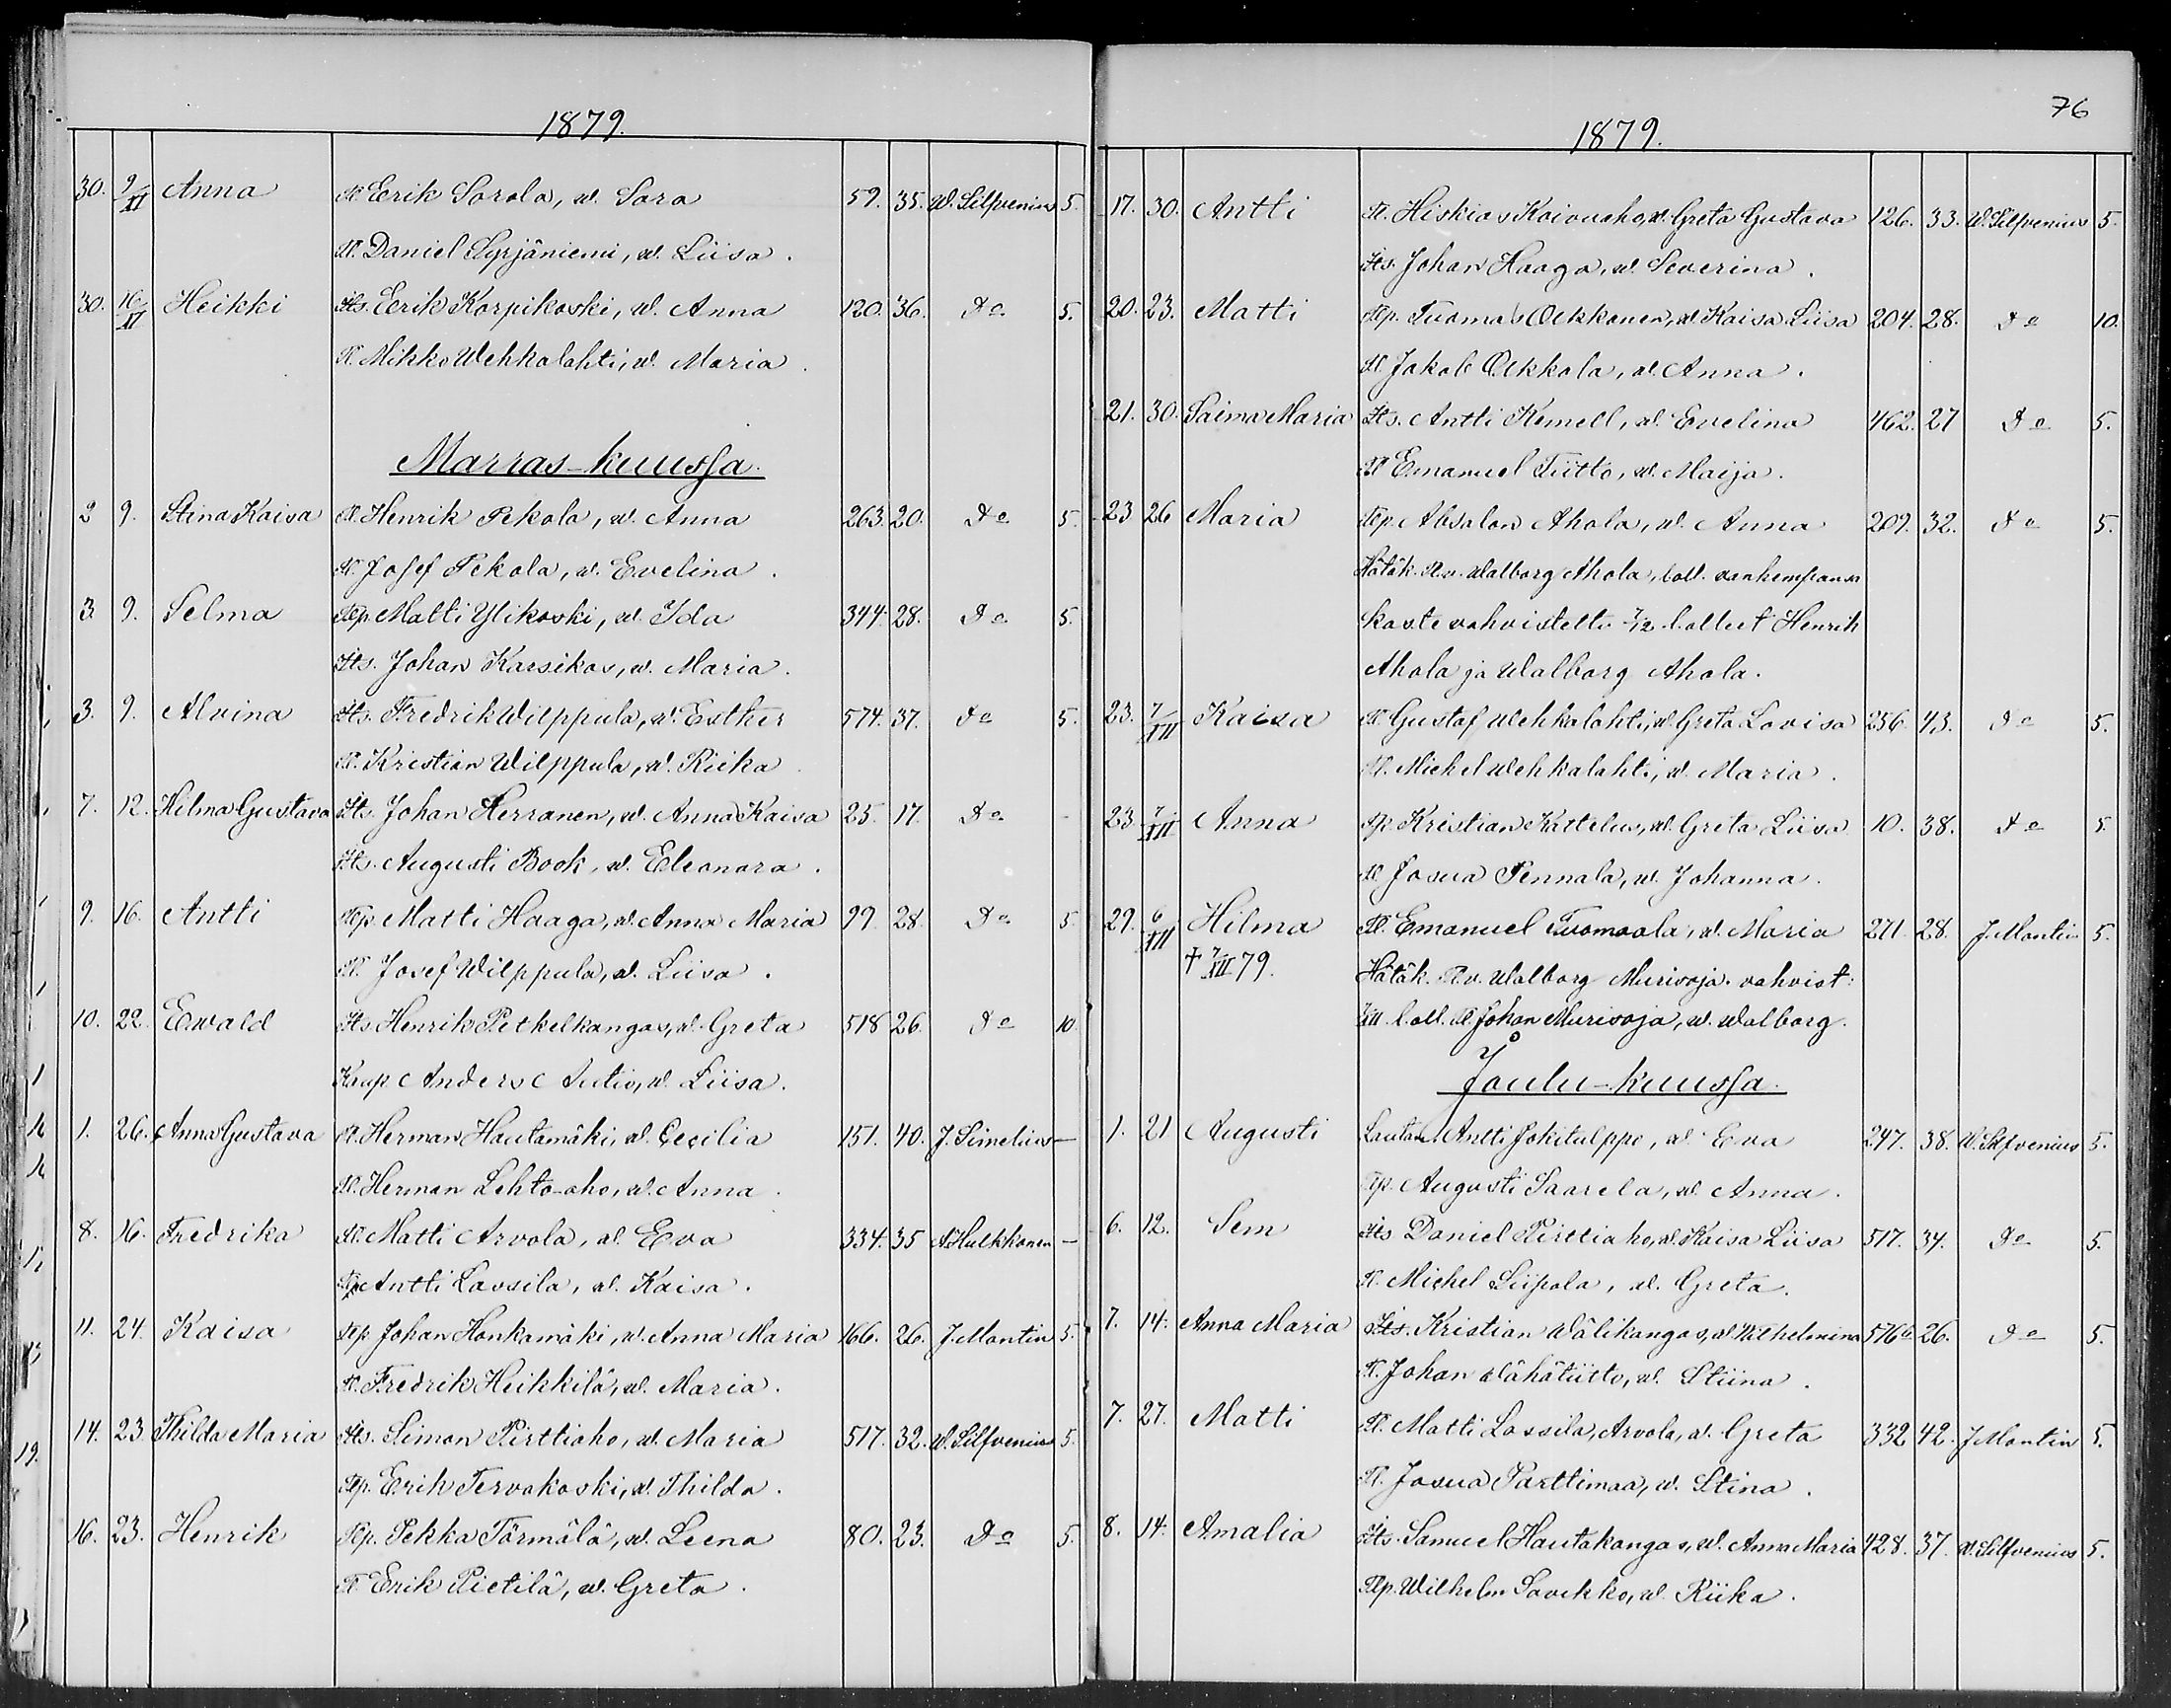 1879.
30. 9/XI Anna Tl. Eerik Sorola, w. Sara 59. 35. W. Silfvenius 5.
Tl. Daniel Syrjäniemi, w. Liisa.
30. 16/XI Heikki Its. Eerik Korpikoski, w. Anna 120. 36. Do 5.
Tl. Mikko Wehkalahti, w. Maria.
Marras-kuussa.
2 9. Stina Kaisa Tl. Henrik Pekola, w. Anna 263. 20. Do 5.
Tl. Josef Pekola, w. Evelina.
3. 9. Selma Tlp. Matti Ylikoski, w. Ida 344. 28. Do 5.
Its. Johan Karsikas, w. Maria.
3. 9. Alvina Its. Fredrik Wilppula, w. Esther 574. 37. Do 5.
Tl. Kristian Wilppula, w. Riika
7. 12. Hilma Gustava Its. Johan Herranen, w. Anna Kaisa 25. 17. Do -
Its. Augusti Book, w. Eleonora.
9. 16. Antti Tlp. Matti Haaga, w. Anna Maria 99. 28. Do 5.
Tl. Josef Wilppula, w. Liisa.
10. 22. Ewald Its. Henrik Petkelkangas, w. Greta 518 26. Do 10.
Kaup. Anders Autio, w. Liisa.
1. 26. Anna Gustava Tl. Herman Hautamäki, w. Cecilia 151. 40. J. Simelius —
Tl. Herman Lehto-aho, w. Anna.
8. 16. Fredrika Tl. Matti Arvola, w. Eva 334. 35 A. Hulkkonen —
Tlp. Antti Lassila, w. Kaisa.
11. 24. Kaisa Tlp. Johan Honkamäki, w. Anna Maria 166. 26. J. Montin 5.
Tl. Fredrik Heikkilä, w. Maria.
14. 23. Thilda Maria Its. Simon Pirttiaho, w. Maria 517. 32. W. Silfvenius 5.
Tlp. Erik Tervakoski, w. Thilda.
16. 23. Henrik Tlp. Pekka Törmälä, w. Leena 80. 23. Do 5.
Tl. Erik Pietilä, w. Greta.
76
1879.
17. 30. Antti Tl. Hiskias Koivuaho, w. Greta Gustava 126. 33. W. Silfvenius 5.
Its. Johan Haaga, w. Severina.
20. 23. Matti Tlp. Tuomas Oekkonen, w. Kaisa Liisa 204. 28. Do 10.
Tl. Jakob Oekkola, w. Anna.
21. 30. Saima Maria Its. Antti Kemell, w. Evelina 462. 27 Do 5.
Tl. Emanuel Tiitto, w. Maija.
23 26 Maria Tlp. Absalon Ahola, w. Anna 209. 32. Do 5.
Hätäk. Tl.v. Walborg Ahola, tod. vanhempansa
kaste vahvistettu 7/12 tod. Henrik
Ahola ja Walborg Ahola.
23. 7/XII Kaisa Tl. Gustaf Wehkalahti, w. Greta Lovisa 256. 43. Do 5.
Tl. Michel Wehkalahti, w. Maria.
23 7/XII Anna Tlp. Kristian Kattelus, w. Greta Liisa 10. 38. Do 5.
Tl. Josua Pennala, w. Johanna.
29. 6/XII Hilma Tl. Emanuel Tuomaala, w. Maria 271. 28. J. Montin 5.
† 7/XII 79. Hätäk. Tl.v. Walborg Murisoja. vahvist:
XII. tod. Tl. Johan Murisoja, w. Walborg.
Joulu-kuussa.
1. 21 Augusti Lautam. Antti Jokitalppo, w. Eva 247. 38. W. Silfvenius 5.
Tlp. Augusti Saarela, w. Anna.
6. 12. Sem Its. Daniel Pirttiaho, w. Kaisa Liisa 517. 34. Do 5.
Tl. Michel Siipola, w. Greta.
7. 14. Anna Maria Its. Kristian Wälikangas, w. Wilhelmina 576 26. Do 5.
Tl. Johan Wähätiitto, w. Stiina.
7. 27. Matti Tl. Matti Lassila, Arvola, w. Greta 332 42. J. Montin 5.
Tl. Josua Parttimaa, w. Stina.
8. 14. Amalia Its. Samuel Hautakangas, w. Anna Maria 428. 37. W. Silfvenius 5.
Tlp. Wilhelm Savekko, w. Riika.